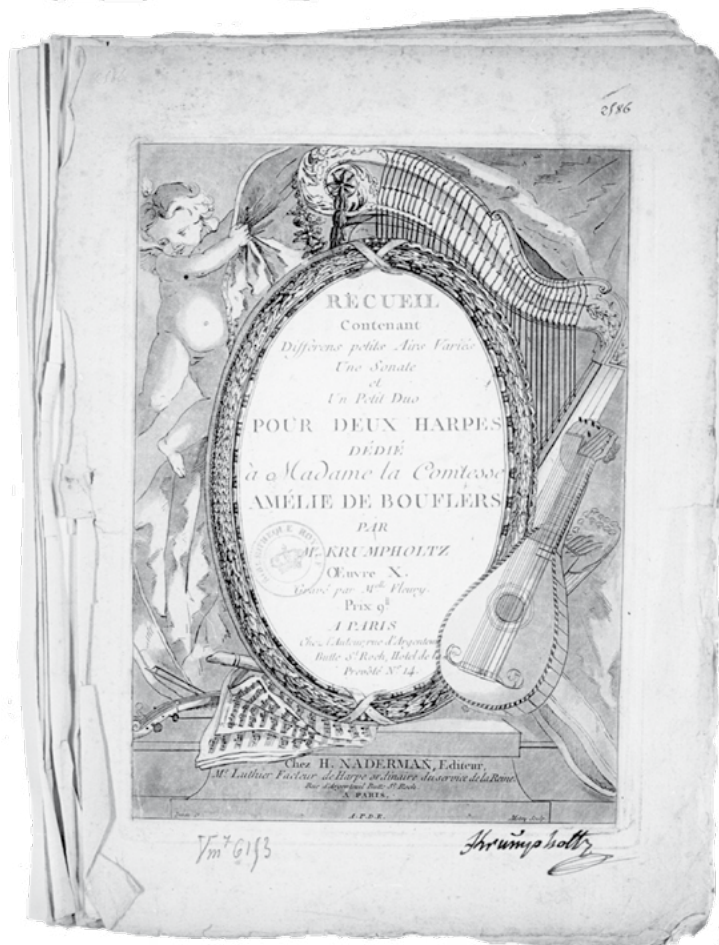 2586
RECUEIL
Contenant
Différens petits Airs Variés
Une Sonate
et
Un Petit Duo
POUR DEUX HARPES
DÉDIÉ
à Madame la Comtesse
AMÉLIE DE BOUFLERS
PAR
Mr. KRUMPHOLTZ
Œuvre X.
Gravé par Melle Fleury.
Prix 9tt
A PARIS
Chez l'Auteur, rue d'Argenteuil
Butte St. Roch, Hotel de la
Prevôté No. 14.
Chez H. NADERMAN, Editeur,
Md. Luthier Facteur de Harpe ordinaire du service de la Reine.
Rue d'Argenteuil Butte St. Roch
A PARIS.
A.P.D.R.
Vm7 6153
Krumpholtz